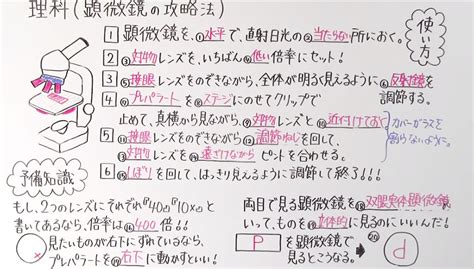 理科(顕微鏡の攻略法)
使い方
1 顕微鏡を、①水平で、直射日光の②当たらない所におく。
2 ③対物レンズを、いちばん④低い倍率にセット!
3 ⑤接眼レンズをのぞきながら、全体が明るく見えるように⑥反射鏡を調節する。
4 ⑦プレパラートを⑧ステージにのせてクリップで
止めて、真横から見ながら、⑨対物レンズと⑩近付けておく
カバーガラスを割らないように。
5 ⑪接眼レンズをのぞきながら⑫調節ねじを回して、
⑬対物レンズを⑭遠ざけながらピントを合わせる。
6 ⑮しぼりを回して、はっきり見えるように調節して終了!!!
予備知識
もし、2つのレンズにそれぞれ「40」「10×」と
書いてあるなら、倍率は⑯400倍!!
見たいものが右下にずれているなら、
プレパラートを⑰右下に動かすといい!
両目で見る顕微鏡を⑱双眼実体顕微鏡
といって、ものを⑲立体的に見るのにいいんだ!
P を顕微鏡で見るとこうなる。 d